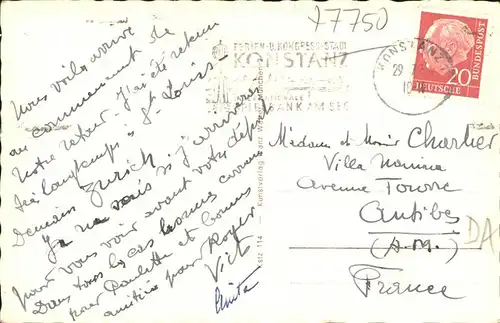 +7750
Nous voilà arrivé
au commencement de
notre retour - J'ai été retenu
très longtemps "St Louis" -
Demain Zurich
Je ne sais si j'arriverai
pour vous voir avant votre départ
Dans tous les cas bonne
pour Paulette et bonnes
amitiés pour Roger
Vict
Anita
Kstz 114 — Kunstverlag Franz
FERIEN- U. KONGRESS-STADT
KONSTANZ
AM SEE
KONSTANZ
29
20
DEUTSCHE
BUNDESPOST
Madame et Monsir Chartier
Villa Nonina
Avenue Tourre
Antibes
(A.M.)
France
DA